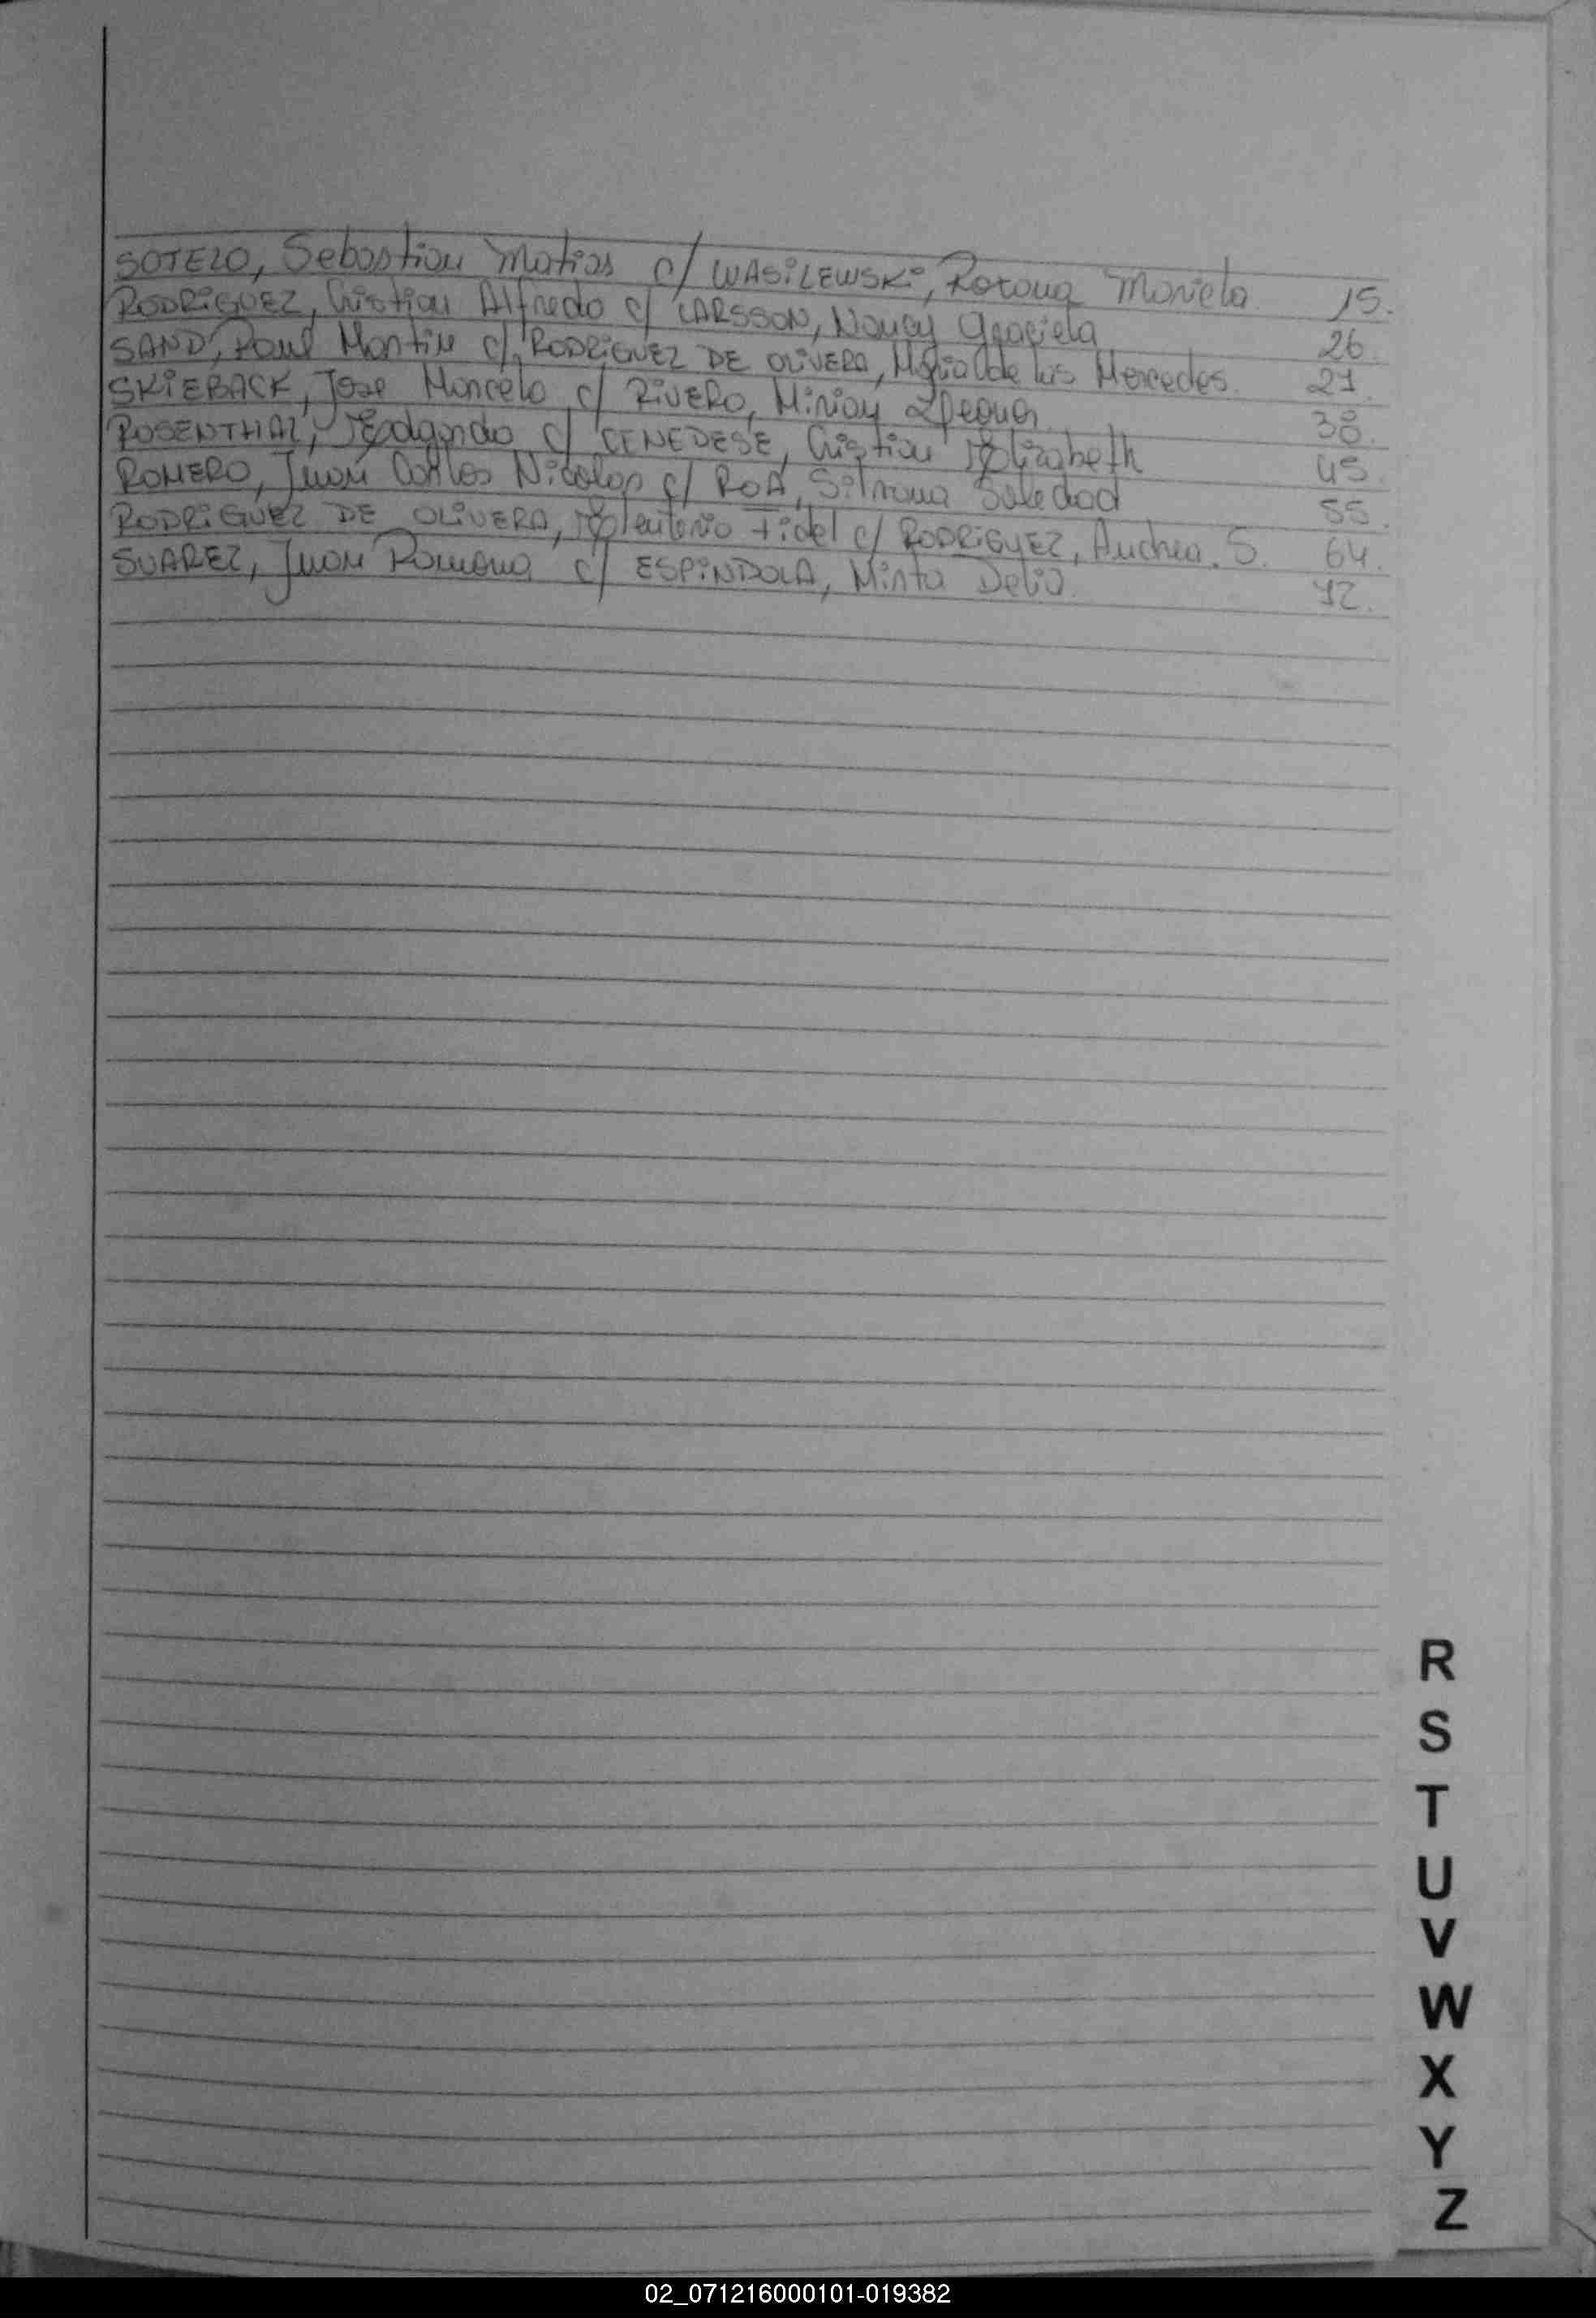 SOTELO, Sebastian Matias c/ WASILEWSKI, Roxana Mariela. 15.
RODRIGUEZ, Cristian Alfredo c/ LARSSON, Nancy Graciela 26.
SAND, Raul Martin c/ RODRIGUEZ DE OLIVERA, Maria de las Mercedes. 27.
SKIEBACK, Jose Marcelo c/ RIVERO, Mirian 38.
ROSENTHAL, Edgardo c/ CENEDESE, Cristian Elizabeth 45.
ROMERO, Juan Carlos Nicolas c/ ROA, Silvana Soledad 55.
RODRIGUEZ DE OLIVERA, Fidel c/ RODRIGUEZ, Andrea. S. 64.
SUAREZ, Juan Romana c/ ESPINDOLA, Mirta Delia. 72.
R
S
T
U
V
W
X
Y
Z
02_071216000101-019382